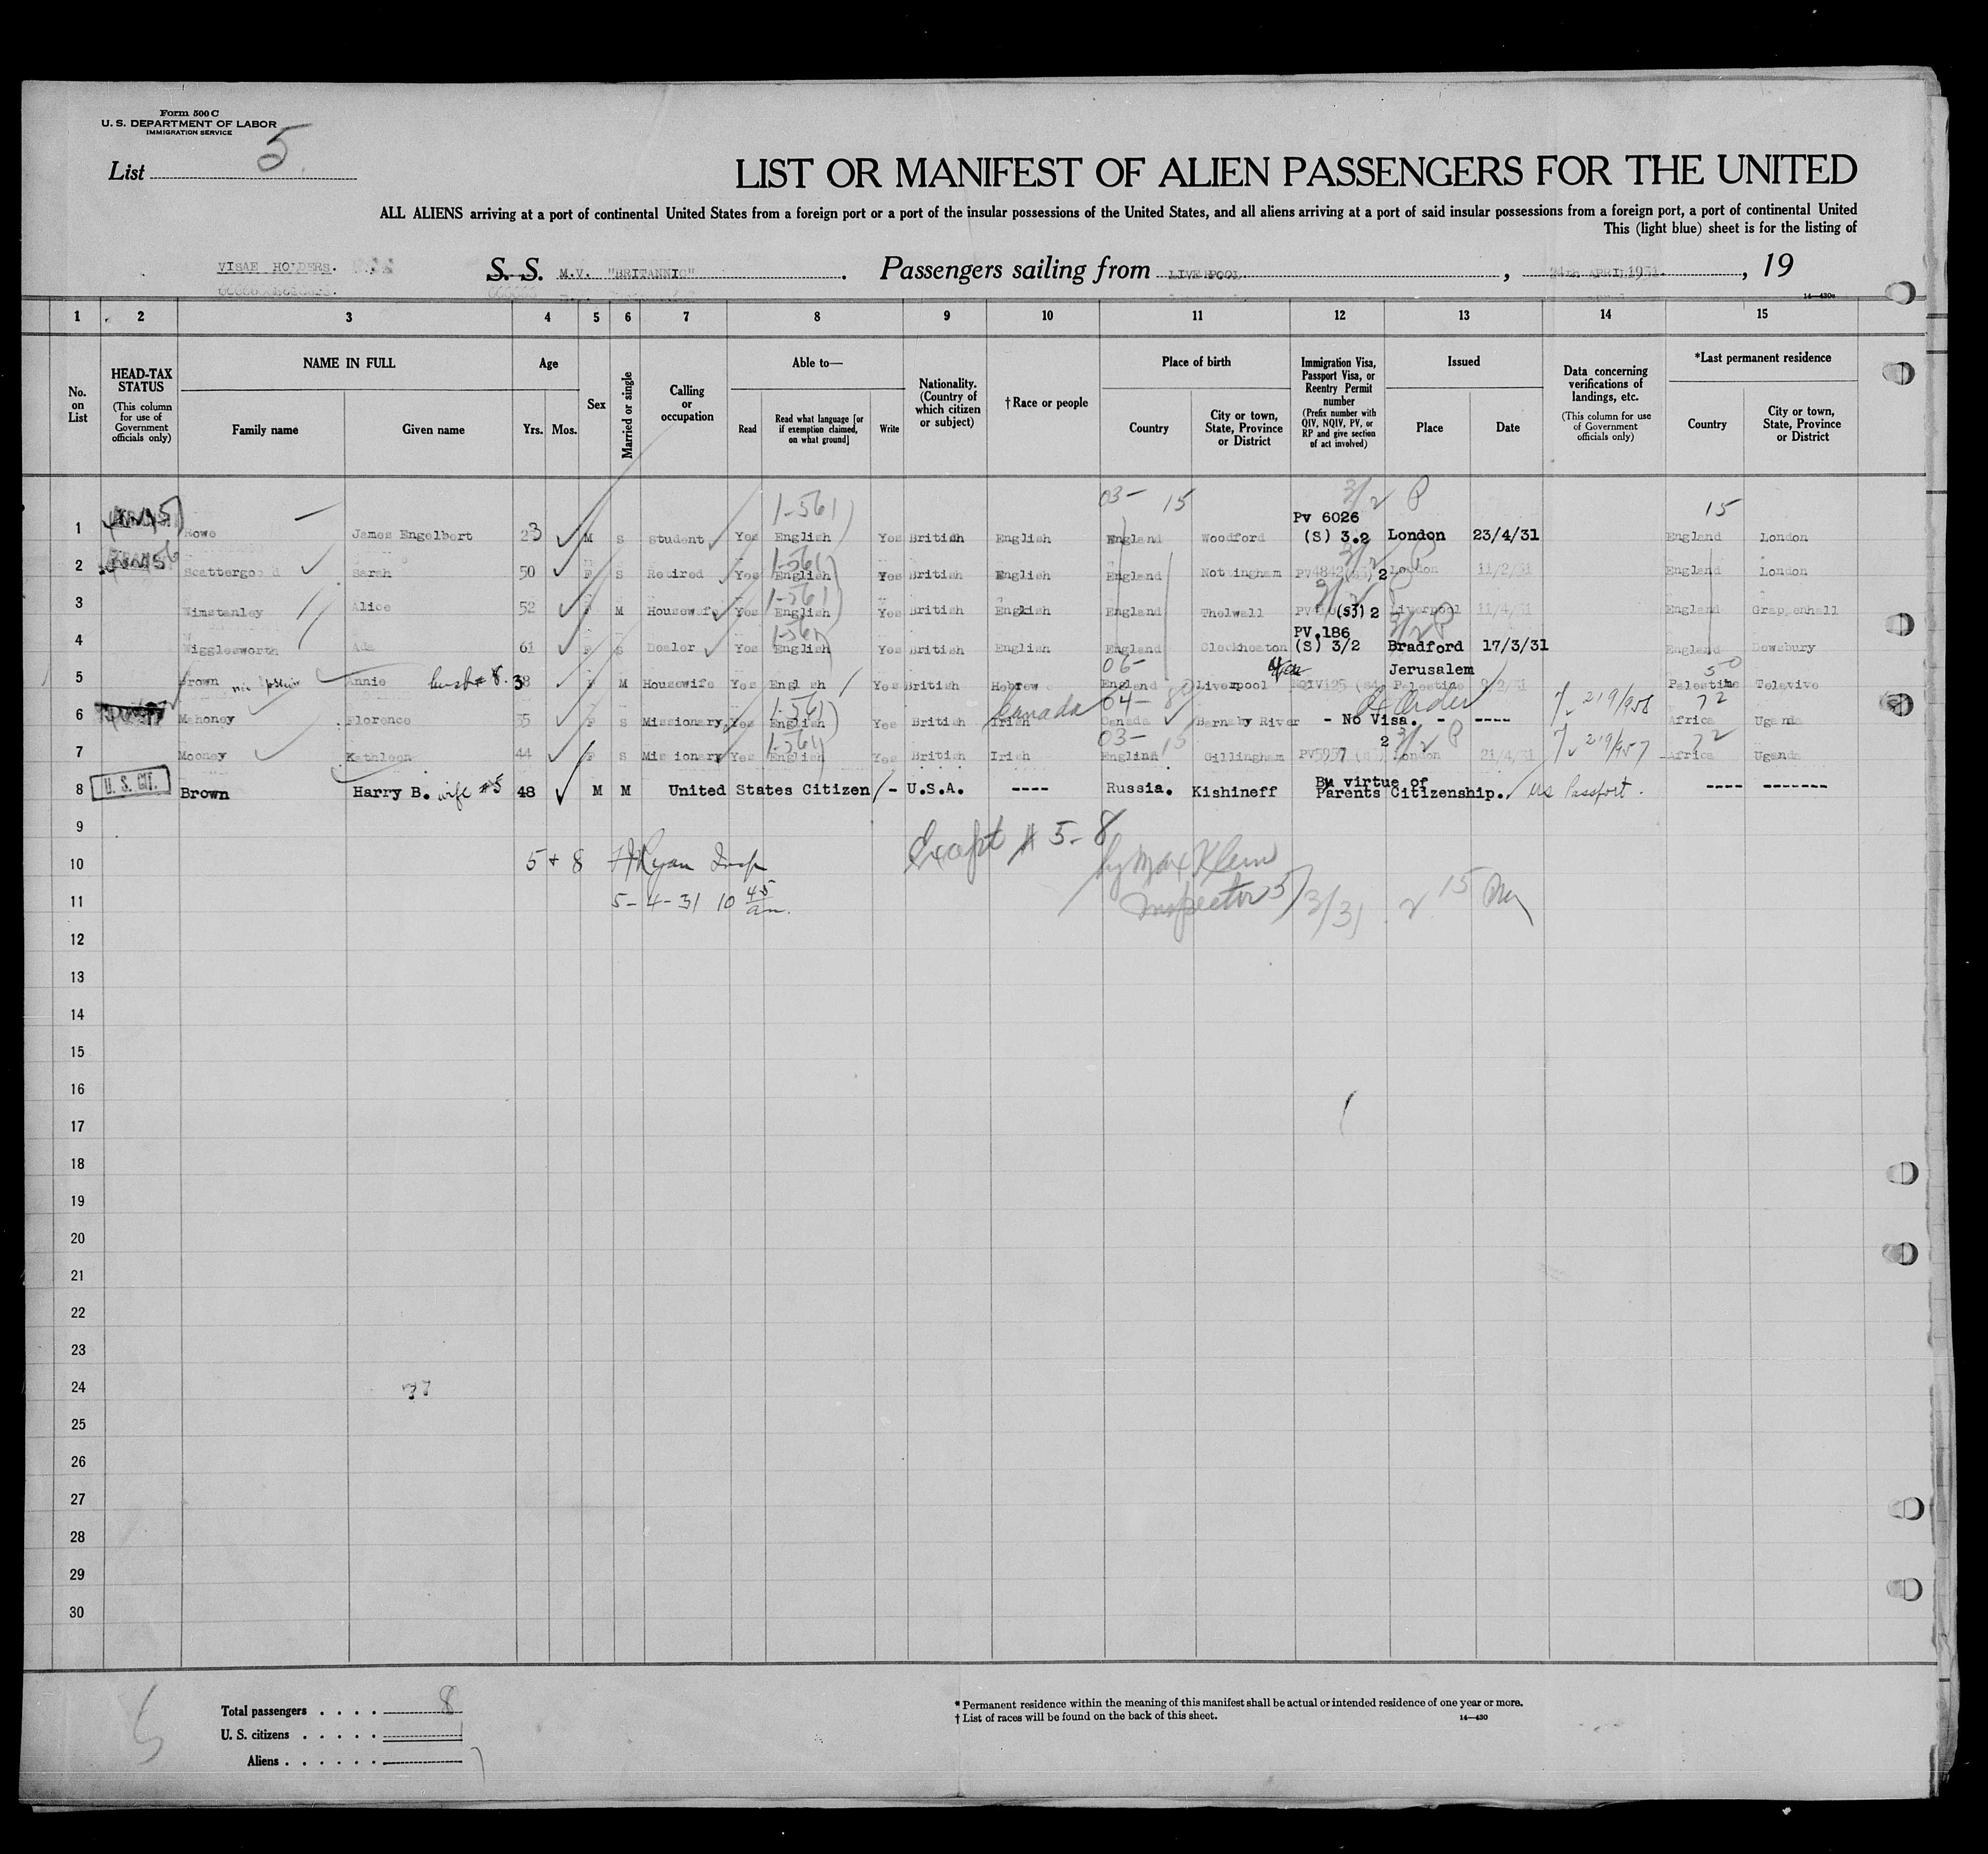 Form 500 C
U. S. DEPARTMENT OF LABOR
IMMIGRATION SERVICE
List 5
LIST OR MANIFEST OF ALIEN PASSENGERS FOR THE UNITED
ALL ALIENS arriving at a port of continental United States from a foreign port or a port of the insular possessions of the United States, and all aliens arriving at a port of said insular possessions from a foreign port, a port of continental United
This (light blue) sheet is for the listing of
VISAE HOLDERS. S. S. M.V. "BRITANNIC" . Passengers sailing from LIVERPOOL , 24th APRIL 1931. , 19
14—430a
1 2 3 4 5 6 7 8 9 10 11 12 13 14 15
No. on List
HEAD-TAX STATUS (This column for use of Government officials only)
NAME IN FULL Family name Given name
Age Yrs. Mos.
Sex
Married or single
Calling or occupation
Able to— Read Read what language [or if exemption claimed, on what ground] Write
Nationality. (Country of which citizen or subject)
† Race or people
Place of birth Country City or town, State, Province or District
Immigration Visa, Passport Visa, or Reentry Permit number (Prefix number with QIV, NQIV, PV, or RP and give section of act involved)
Issued Place Date
Data concerning verifications of landings, etc. (This column for use of Government officials only)
*Last permanent residence Country City or town, State, Province or District
1-561 03- 15 3/2 P 15
1 Rowe James Engelbert 23 M S Student Yes English Yes British English England Woodford Pv 6026 (S) 3.2 London 23/4/31 England London
1-561 3/2 P
2 Scattergood Sarah 50 F S Retired Yes English Yes British English England Nottingham PV4842 2 London 11/2/31 England London
1-561 3/2 P
3 Winstanley Alice 52 F M Housewife Yes English Yes British English England Thelwall (S) 2 Liverpool 11/4/31 England Grappenhall
1-561 3/2 P
4 Wigglesworth Ada 61 F S Dealer Yes English Yes British English England Cleckheaton PV.186 (S) 3/2 Bradford 17/3/31 England Dewsbury
06- 50
5 Brown Annie husb # 8. 38 F M Housewife Yes English Yes British Hebrew England Liverpool Jerusalem Palestine Palestine Telavive
1-561 Canada 04-
6 Mahoney Florence 35 F S Missionary Yes English Yes British Irish Canada Barnaby River - No Visa. - ---- 219/958 72 Africa Uganda
1-561 03- 15 3/2 P
7 Mooney Kathleen 44 F S Missionary Yes English Yes British Irish England Gillingham PV5937 2 London 21/4/31 219/957 72 Africa Uganda
8 U. S. CIT. Brown Harry B. wife #5 48 M M United States Citizen - U.S.A. ---- Russia. Kishineff By virtue of Parents Citizenship. us Passport. ---- -------
9
10 5 + 8 Ryan Insp Except # 5-8 by Max Klein
11 5-4-31 10 45 am. Inspector 5/3/31 2 15 PM
12
13
14
15
16
17
18
19
20
21
22
23
24
25
26
27
28
29
30
Total passengers . . . . 8
U. S. citizens . . . . . 1
Aliens . . . . . . 7
* Permanent residence within the meaning of this manifest shall be actual or intended residence of one year or more.
† List of races will be found on the back of this sheet.
14—430